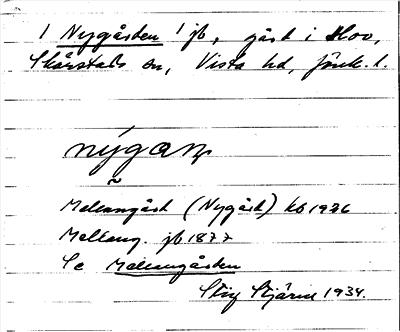 1 Nygården 1 jb, gård i Hov,
Skärstads sn, Vista hd, Jönk. l.
nýgaɳ
~
Mellangård (Nygård) kb 1926
Mellang. jb 1877
Se Mellangården
Stig Stjärne 1934.